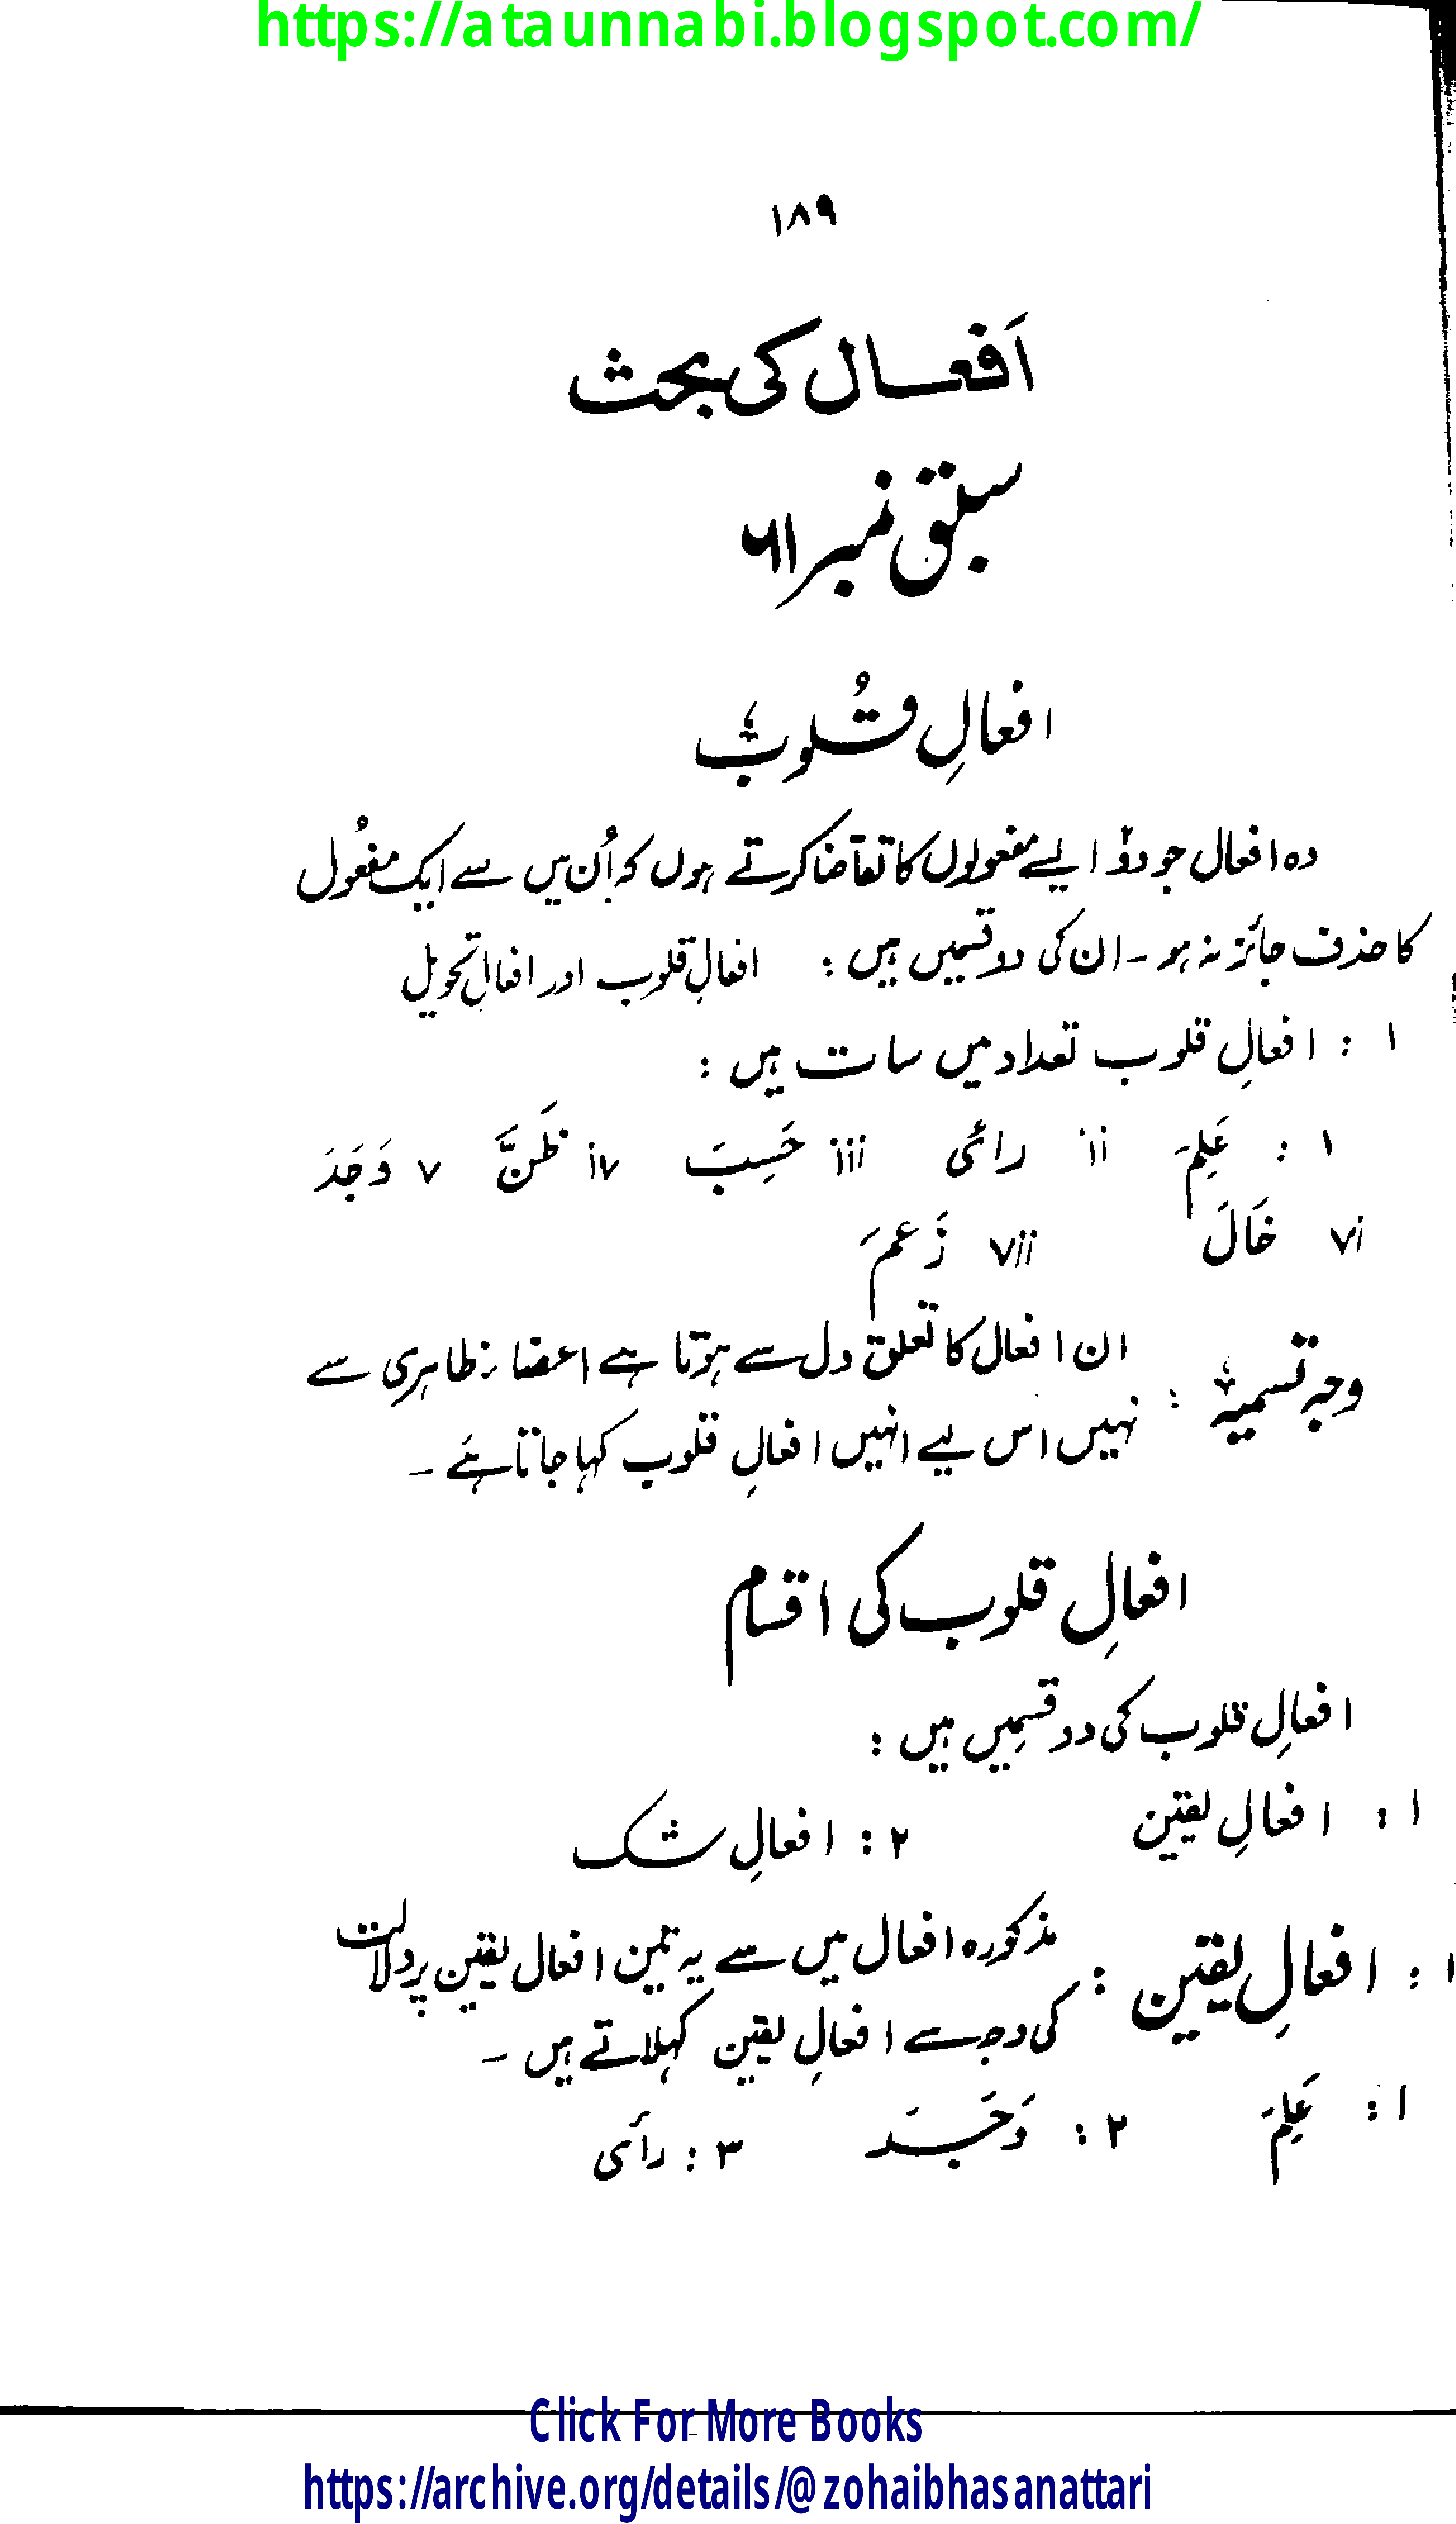 https://ataunnabi.blogspot.com/
١٨٩
اَفعال کی بحث
سبق نمبر ٦١
افعالِ قُلوب
وہ افعال جو دو ایسے مفعولوں کا تقاضا کرتے ہوں کہ اُن میں سے ایک مفعُول
کا حذف جائز نہ ہو ۔ ان کی دو قسمیں ہیں : افعالِ قلوب اور افعالِ تحویل
١ : افعالِ قلوب تعداد میں سات ہیں :
١ : عَلِمَ ii رأی iii حَسِبَ iv ظَنَّ v وَجَدَ
vi خَالَ vii زَعمَ
وجہ تسمیہ : ان افعال کا تعلق دل سے ہوتا ہے اعضاء ظاہری سے
نہیں اس لیے انہیں افعالِ قلوب کہا جاتا ہے ۔
افعالِ قلوب کی اقسام
افعالِ قلوب کی دو قسمیں ہیں :
١ : افعالِ یقین ٢ : افعالِ شک
١ : افعالِ یقین : مذکورہ افعال میں سے یہ تین افعال یقین پر دلالت
کی وجہ سے افعالِ یقین کہلاتے ہیں ۔
١ : عَلِمَ ٢ : وَجَدَ ٣ : رأی
Click For More Books
https://archive.org/details/@zohaibhasanattari